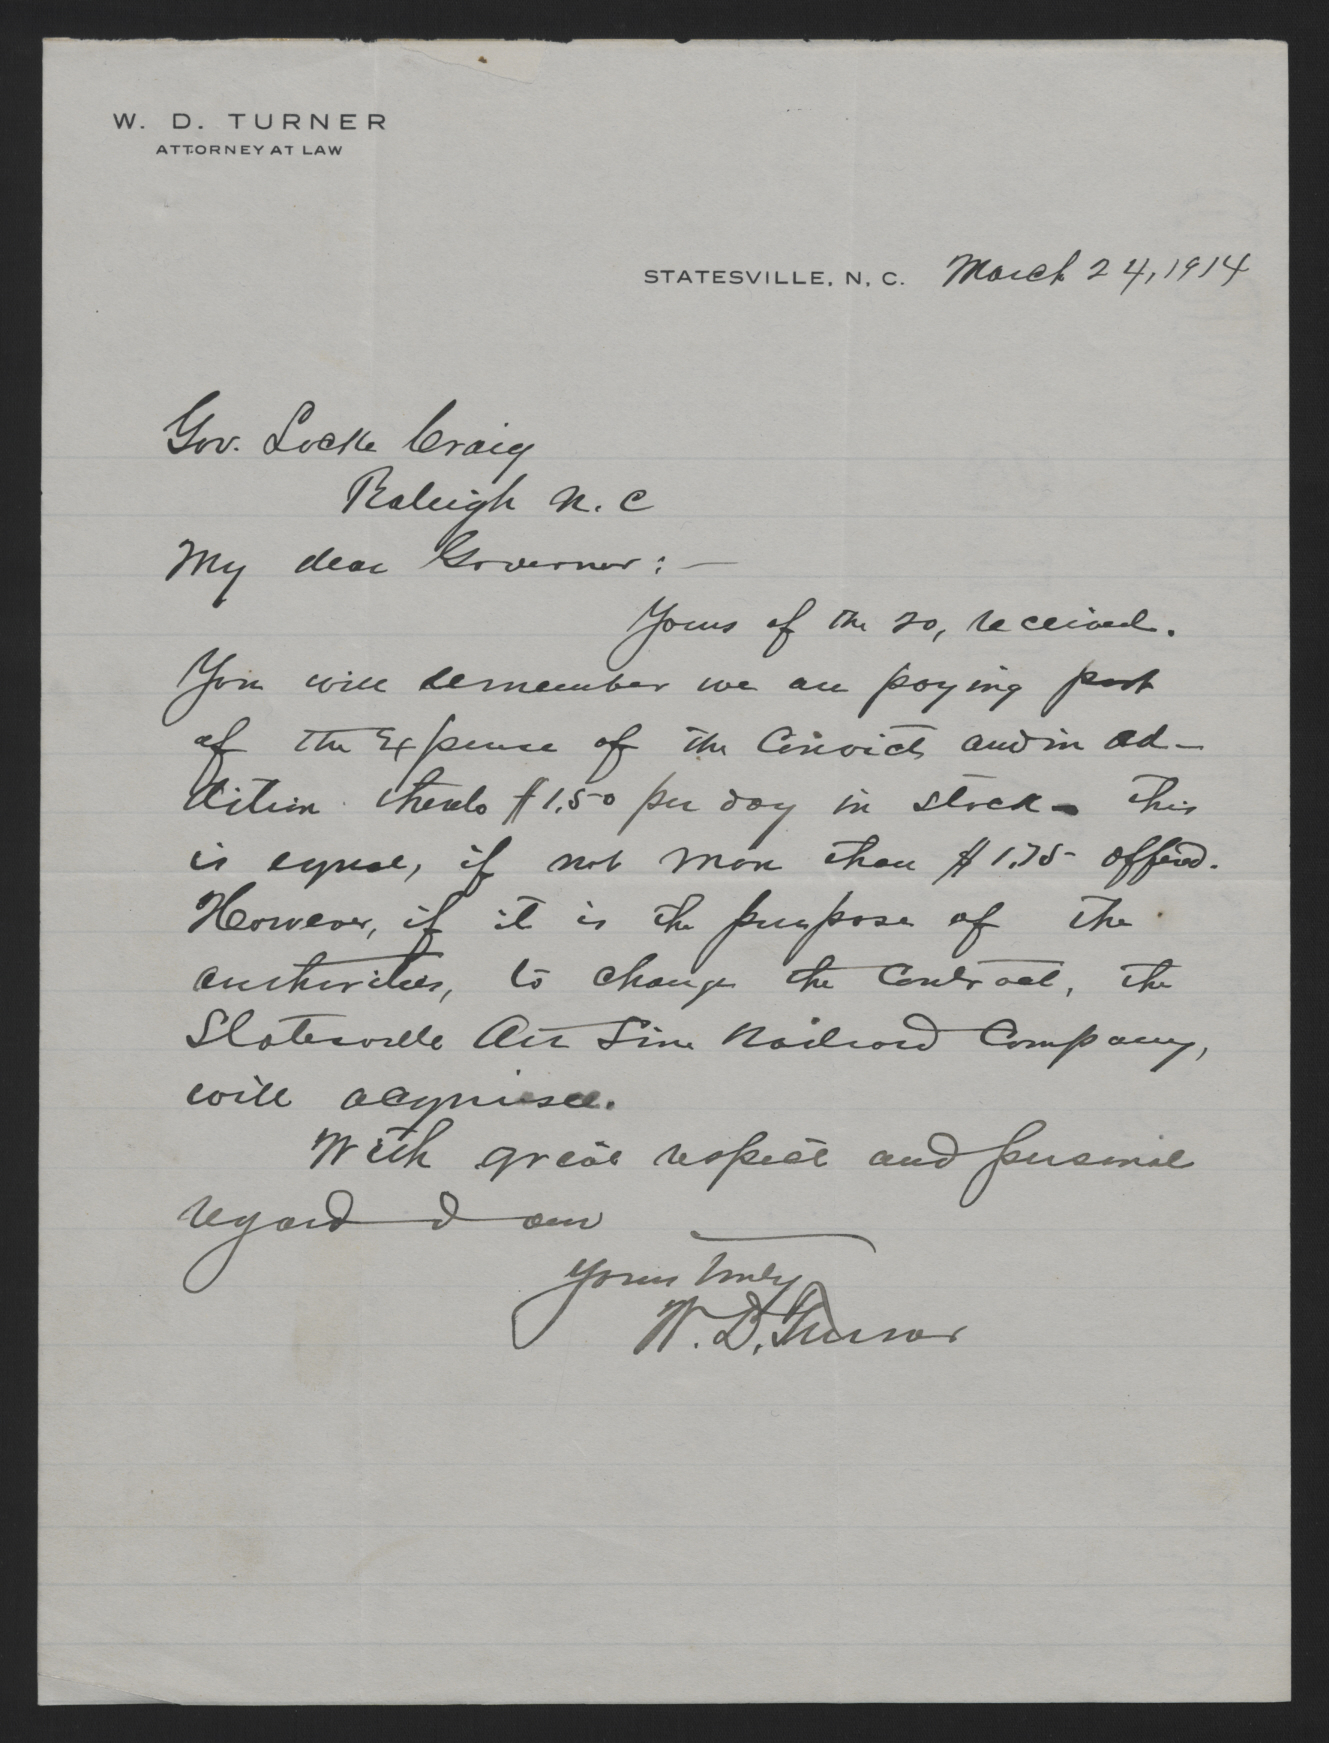 W. D. TURNER
ATTORNEY AT LAW
STATESVILLE, N. C. March 24, 1914
Gov. Locke Craig
Raleigh N. C
My dear Governor:—
Yours of the 20, received.
You will remember we are paying part
of the Expense of the Convicts and in ad-
dition thereto $1.50 per day in stock - This
is equal, if not more than $1.75 offered.
However, if it is the purpose of the
authorities, to change the Contract, the
Statesville Air Line Railroad Company,
will acquiesce.
With great respect and personal
regard I am
Yours truly
W. D. Turner